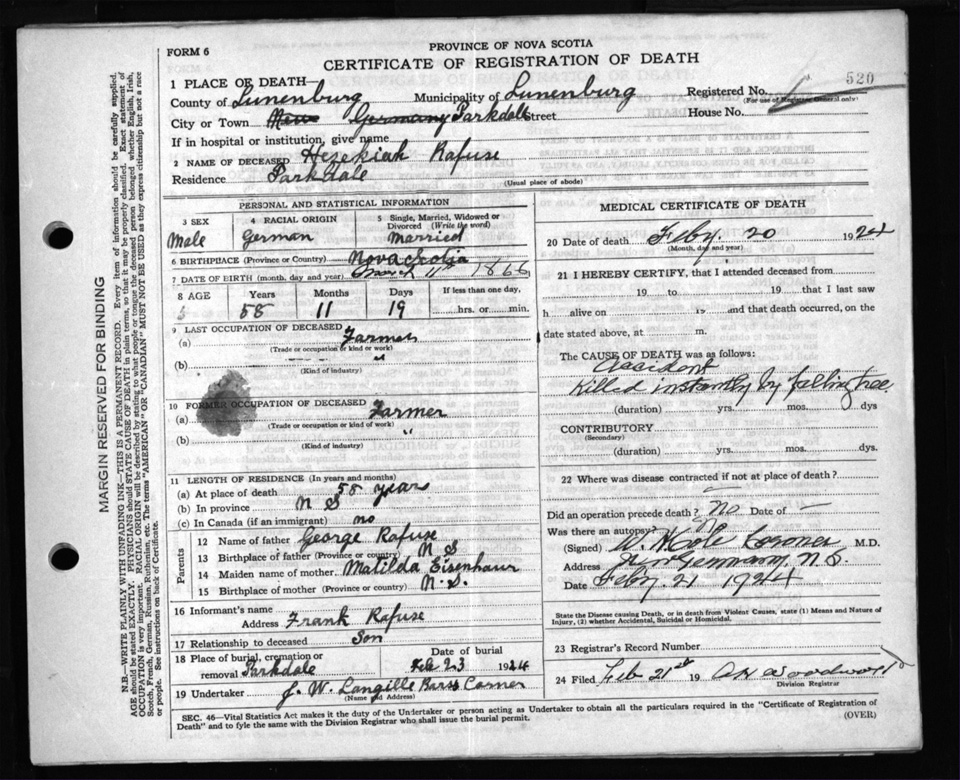 FORM 6
PROVINCE OF NOVA SCOTIA
CERTIFICATE OF REGISTRATION OF DEATH
520
1 PLACE OF DEATH—
County of Lunenburg Municipality of Lunenburg Registered No.
(For use of Registrar General only)
City or Town New Germany Parkdale Street House No.
If in hospital or institution, give name
2 NAME OF DECEASED Hezekiah Rafuse
Residence Parkdale
(Usual place of abode)
PERSONAL AND STATISTICAL INFORMATION
3 SEX 4 RACIAL ORIGIN 5 Single, Married, Widowed or Divorced (Write the word)
Male German Married
6 BIRTHPLACE (Province or Country) Nova Scotia
7 DATE OF BIRTH (month, day and year) 11th 1866
8 AGE Years Months Days If less than one day,
58 11 19 hrs. or min.
9 LAST OCCUPATION OF DECEASED
(a) Farmer
(Trade or occupation or kind or work)
(b) "
(Kind of industry)
10 FORMER OCCUPATION OF DECEASED
(a) Farmer
(Trade or occupation or kind of work)
(b) "
(Kind of industry)
11 LENGTH OF RESIDENCE (In years and months)
(a) At place of death 58 years
(b) In province N S
(c) In Canada (if an immigrant) no
Parents
12 Name of father George Rafuse
13 Birthplace of father (Province or country) N S
14 Maiden name of mother Matilda Eisenhaur
15 Birthplace of mother (Province or country) N. S.
16 Informant's name
Address Frank Rafuse
17 Relationship to deceased Son
18 Place of burial, cremation or removal Parkdale Date of burial Feb 23 1924
19 Undertaker J. W. Langille Barss Corner
(Name and Address)
MEDICAL CERTIFICATE OF DEATH
20 Date of death Feby. 20 1924
(Month, day and year)
21 I HEREBY CERTIFY, that I attended deceased from
19 to 19 that I last saw
h alive on 19 and that death occurred, on the
date stated above, at m.
The CAUSE OF DEATH was as follows:
Accident
Killed instantly by falling tree
(duration) yrs. mos. dys
CONTRIBUTORY
(Secondary)
(duration) yrs. mos. dys.
22 Where was disease contracted if not at place of death?
—
Did an operation precede death? no Date of —
Was there an autopsy? no
(Signed) W. H. Cole Coroner M.D.
Address New Germany, N.S.
Date Feby. 21 1924
State the Disease causing Death, or in death from Violent Causes, state (1) Means and Nature of
Injury, (2) whether Accidental, Suicidal or Homicidal.
23 Registrar's Record Number
24 Filed Feb 21st 19
Division Registrar
SEC. 46—Vital Statistics Act makes it the duty of the Undertaker or person acting as Undertaker to obtain all the particulars required in the "Certificate of Registration of
Death" and to fyle the same with the Division Registrar who shall issue the burial permit.
(OVER)
MARGIN RESERVED FOR BINDING
N.B.—WRITE PLAINLY WITH UNFADING INK—THIS IS A PERMANENT RECORD. Every item of information should be carefully supplied.
AGE should be stated EXACTLY. PHYSICIANS should STATE CAUSE OF DEATH in plain terms, so that it may be properly classified. Exact statement of
OCCUPATION is very important. RACIAL ORIGIN will be described by stating to what people or tongue the deceased person belonged whether English, Irish,
Scotch, French, German, Russian, Ruthenian, etc. The terms "AMERICAN" OR "CANADIAN" MUST NOT BE USED as they express citizenship but not a race
or people. See instructions on back of Certificate.